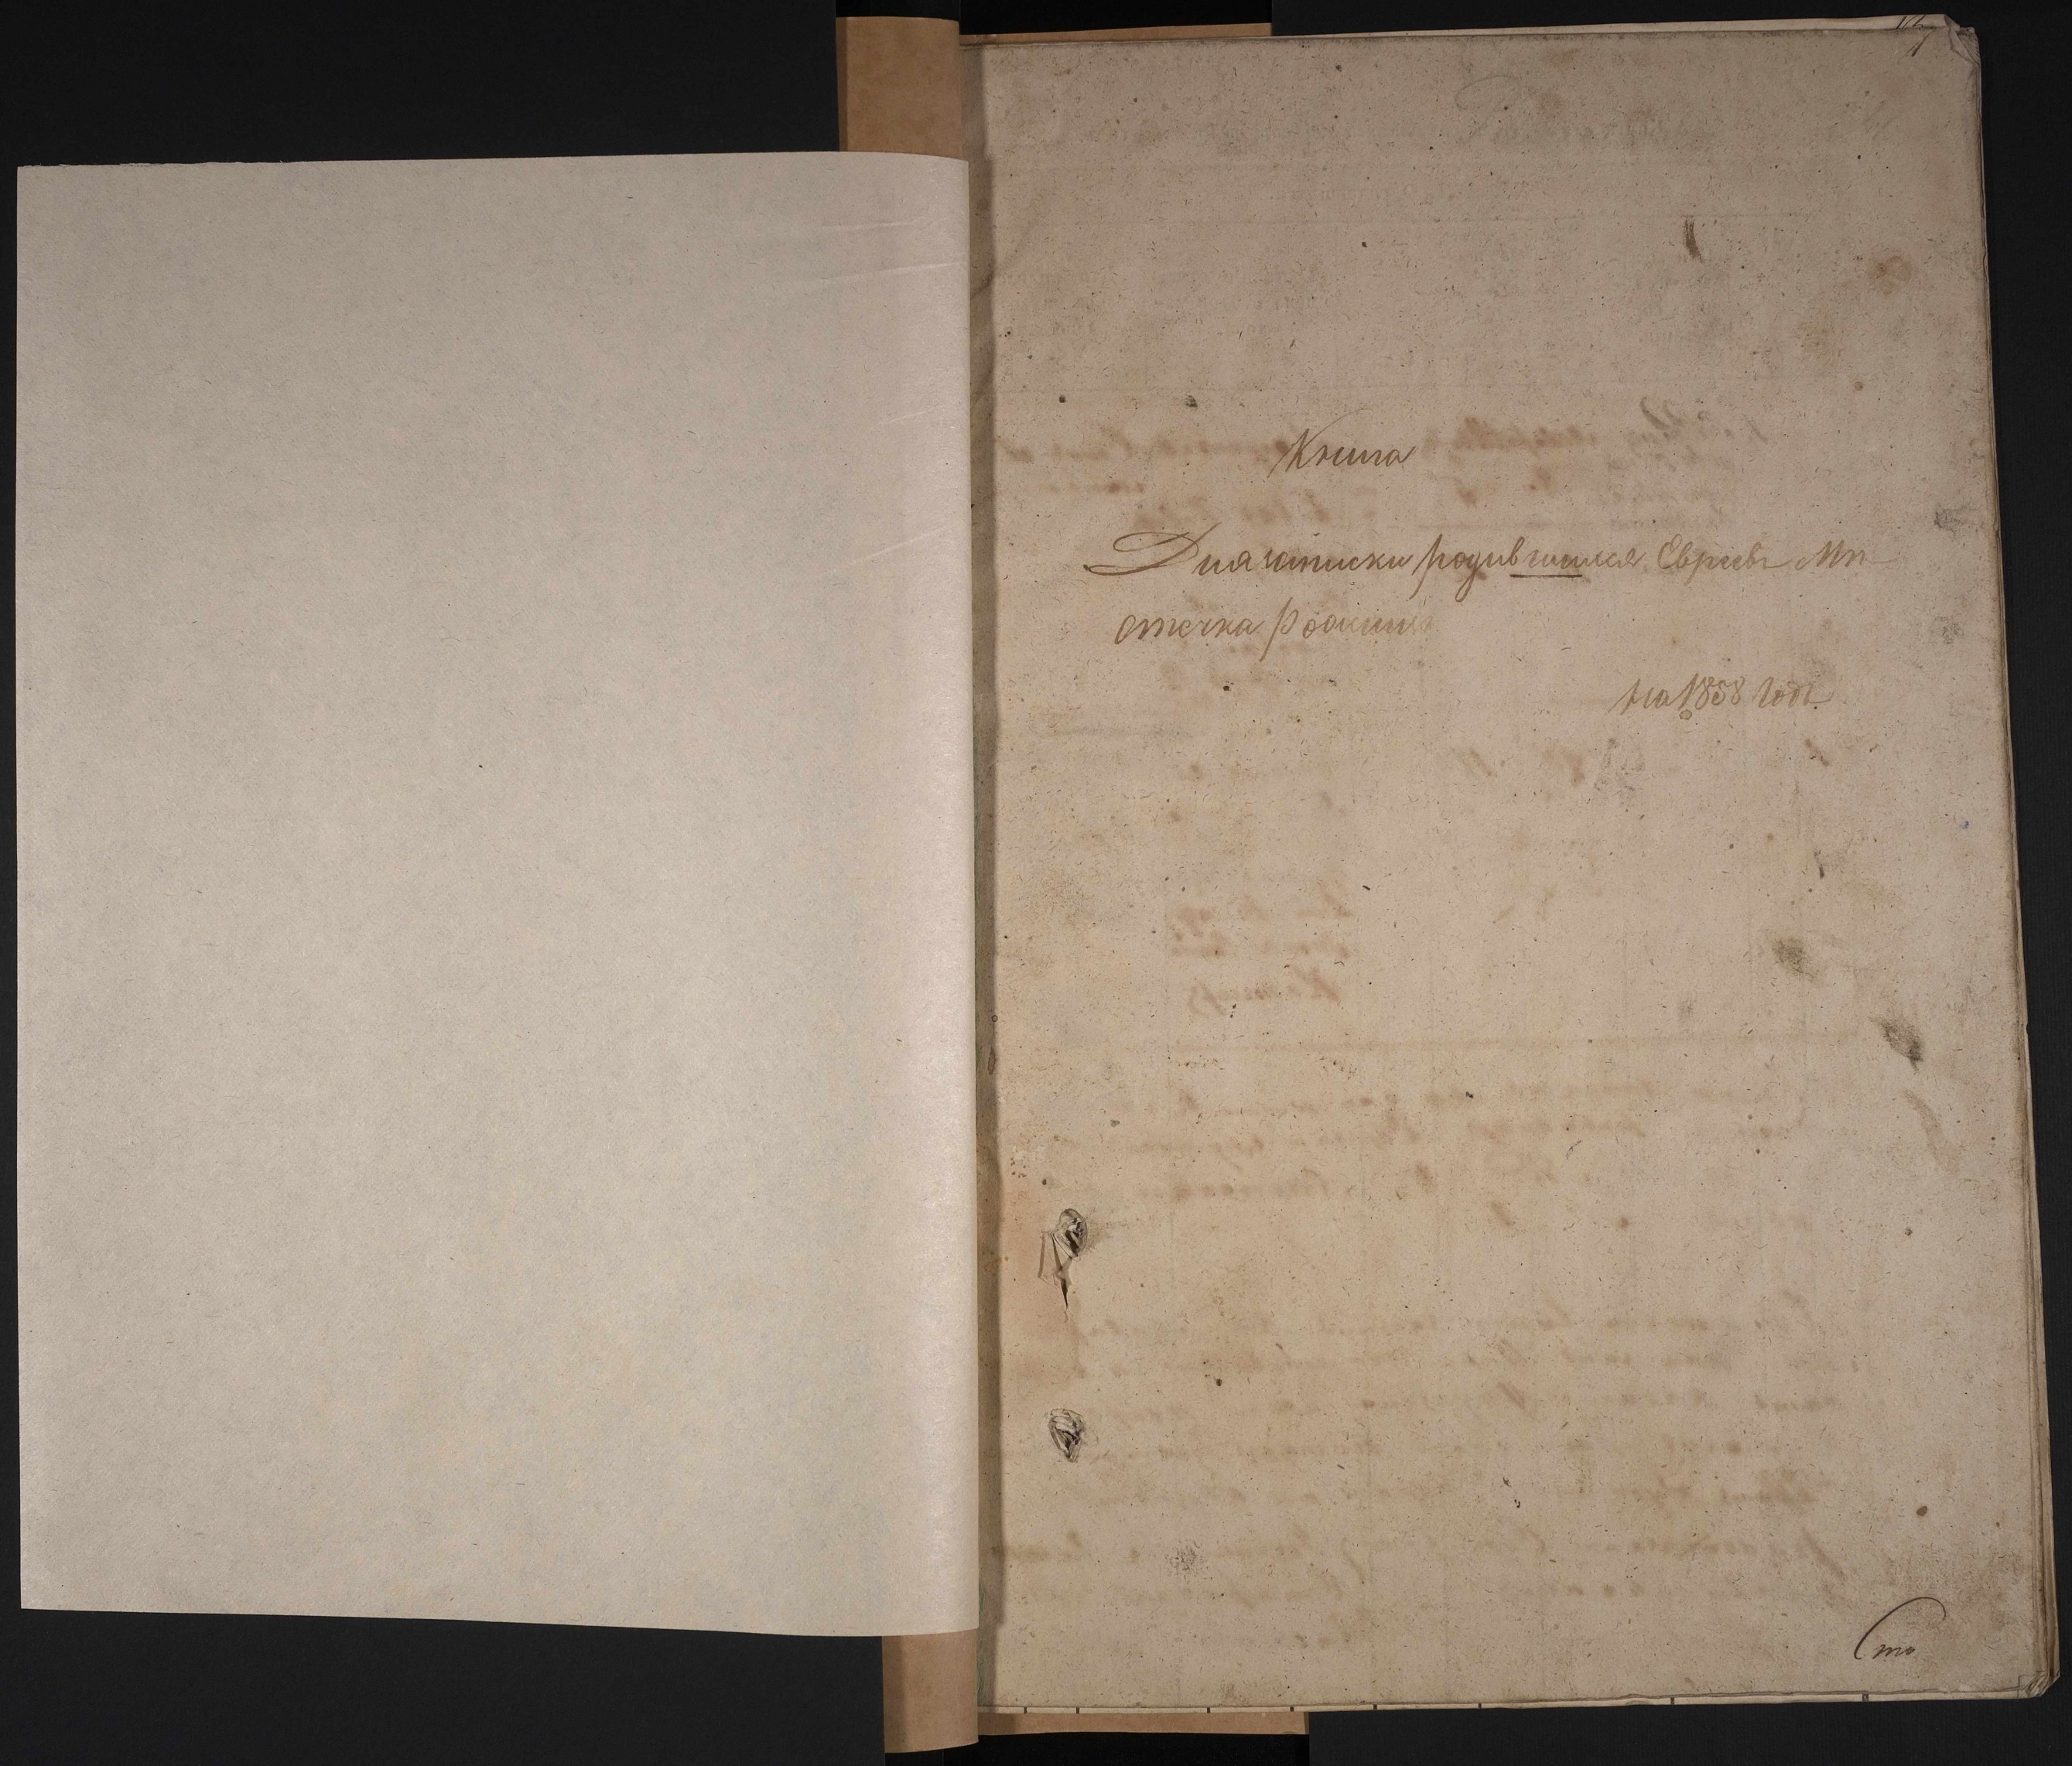 Книга
Для записки родившихся Евреевъ Мѣ
стечка
на 1858 годъ
Сто